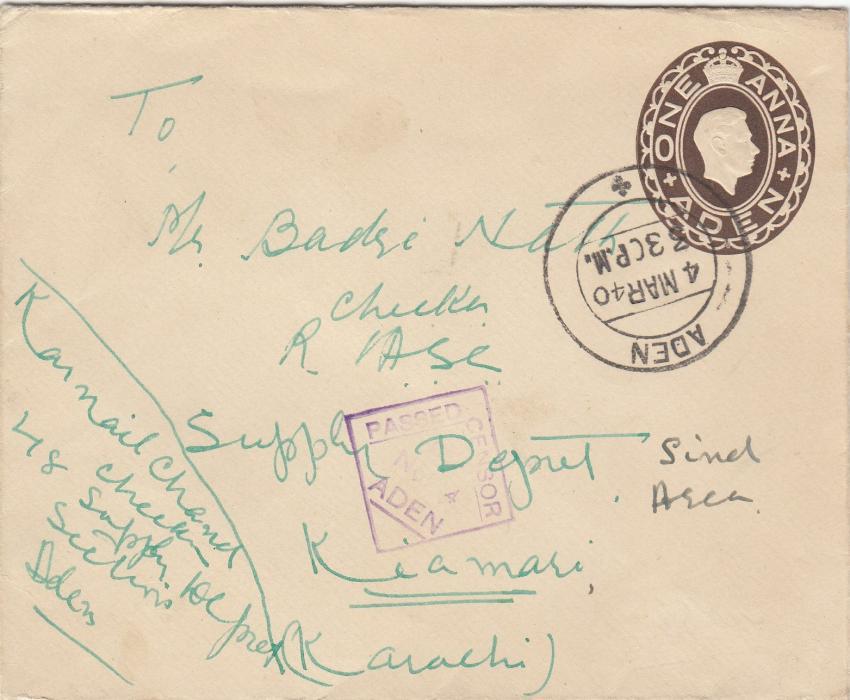 ONE ANNA
ADEN
ADEN
4 MAR 40
3 30 P.M.
To
Mr Badri Nath
Checker
R IASC
Supply Depot
Kiamari,
(Karachi)
Sind
Area
PASSED CENSOR
No 4
ADEN
Karnail Chand
Checker
Supply Depot
Section
Aden